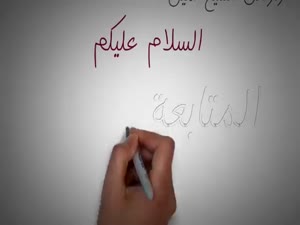 السلام عليكم
المتابعة